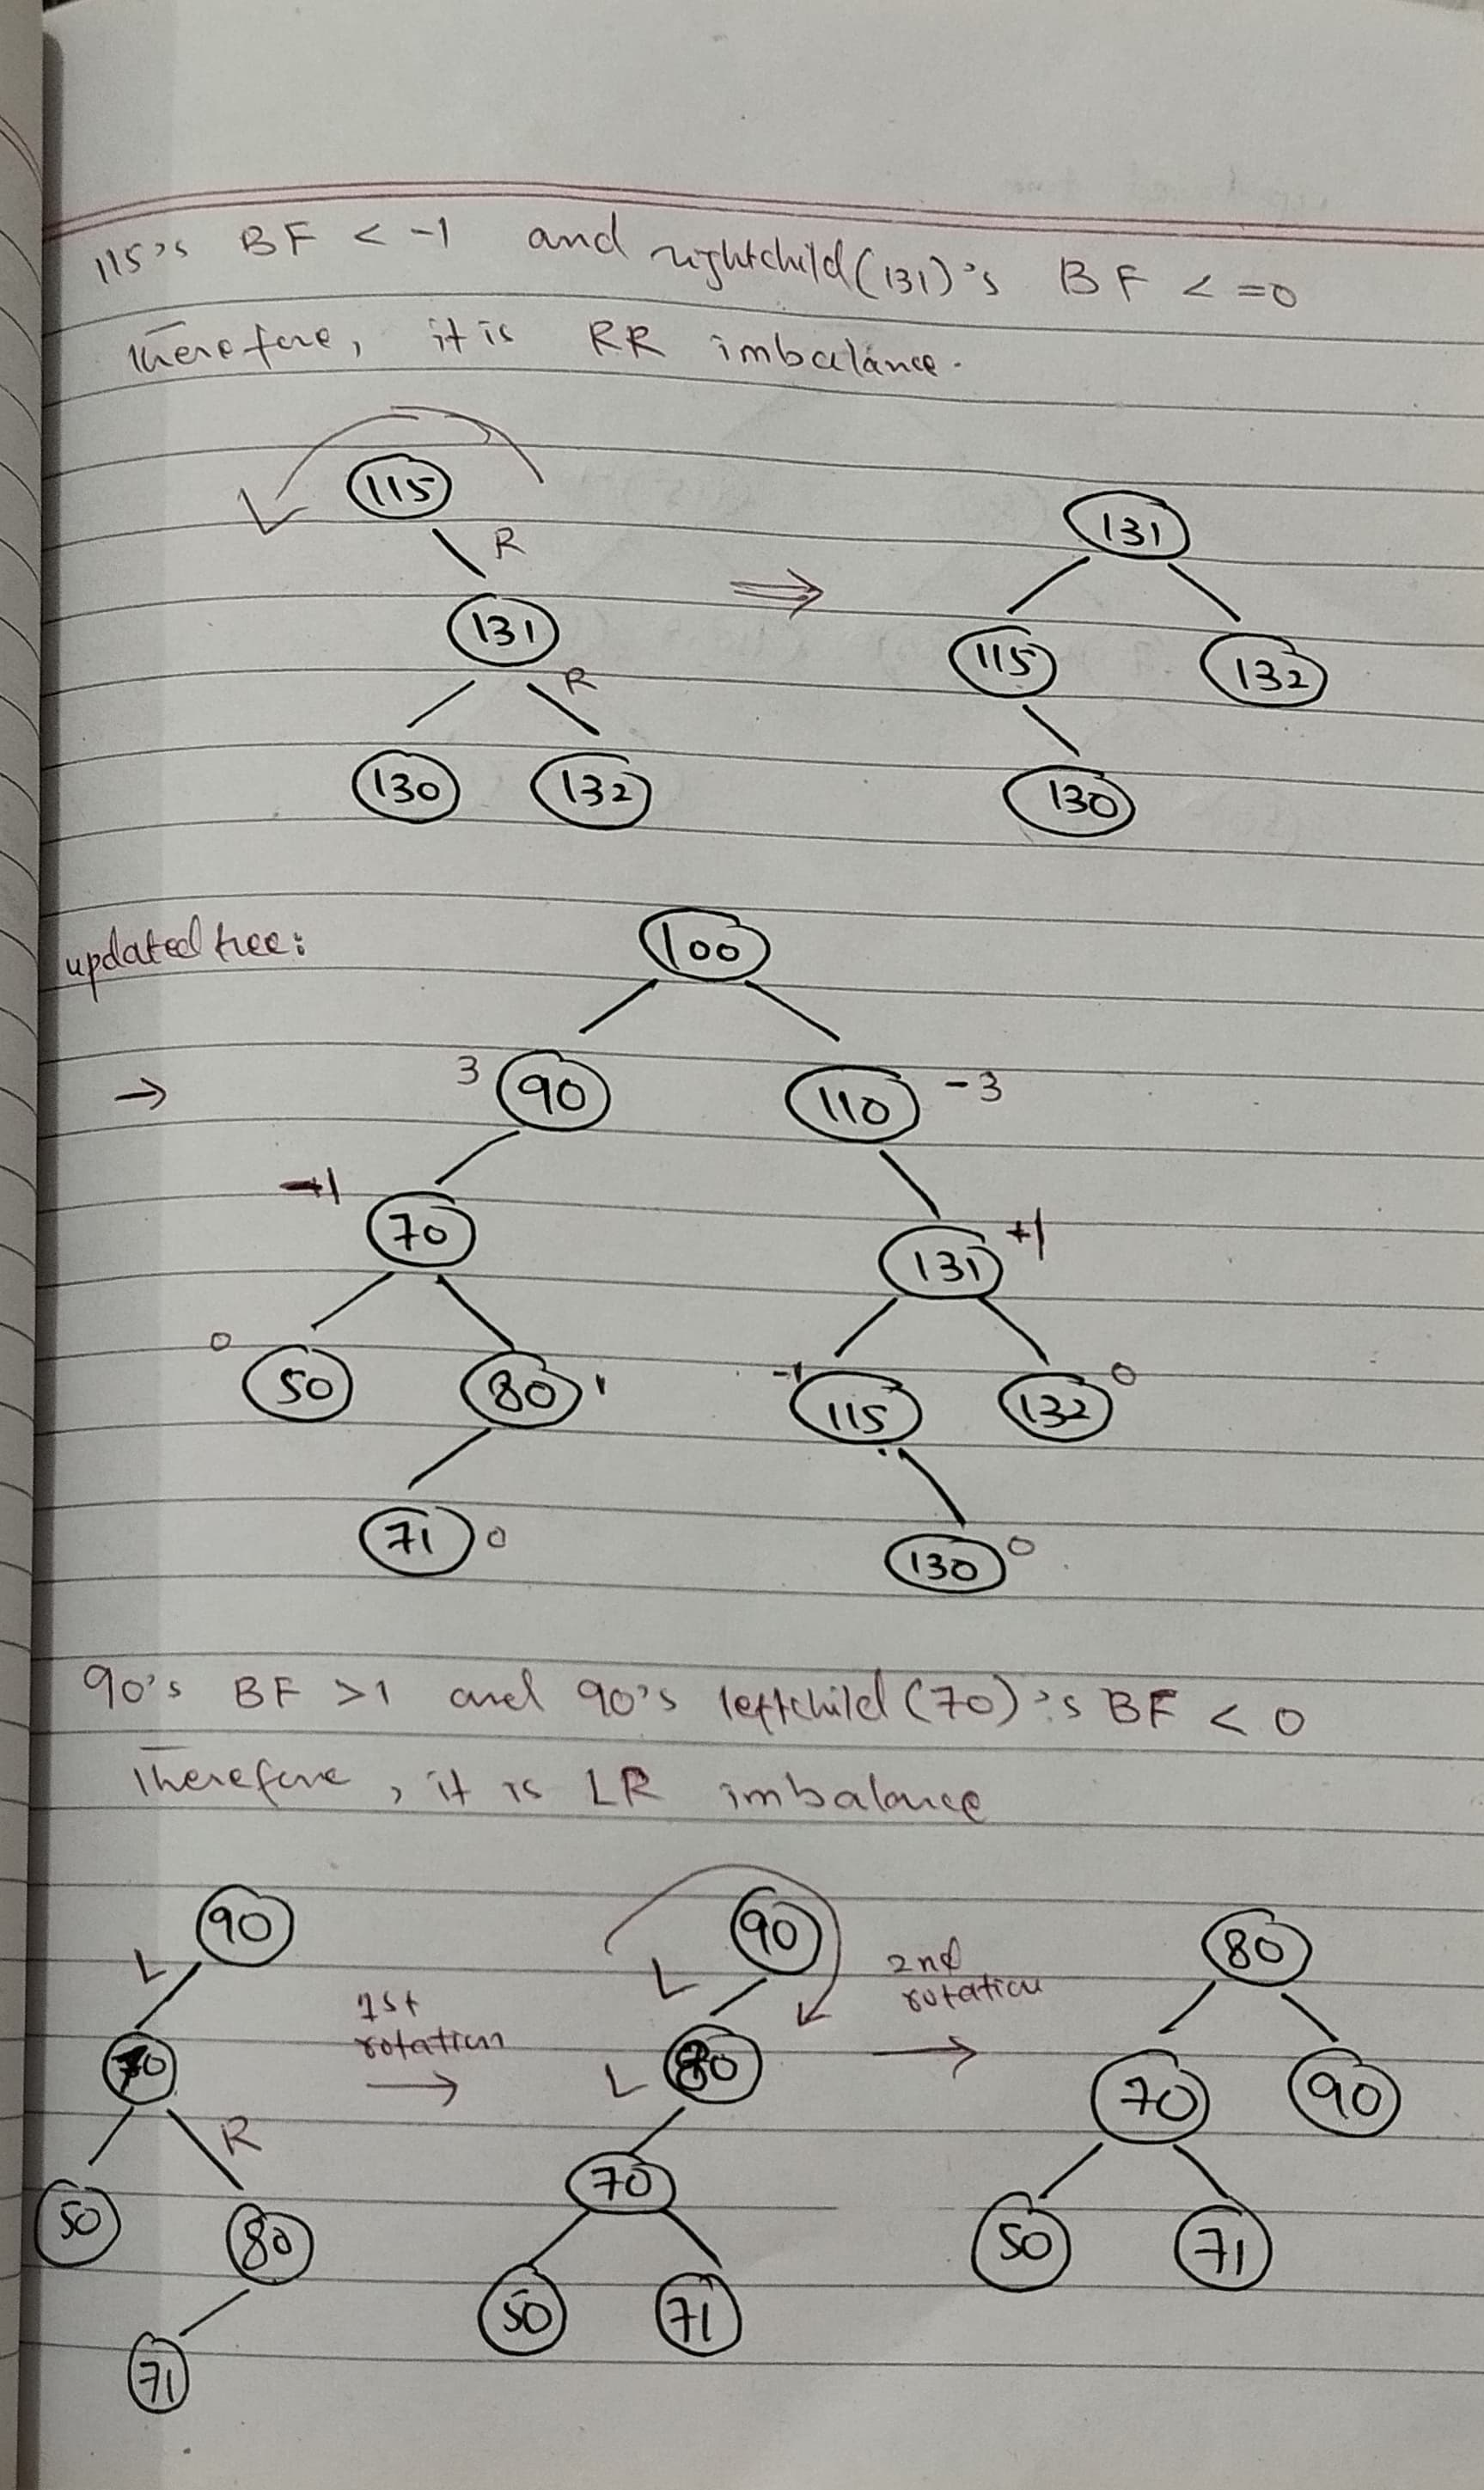 115's BF < -1 and rightchild(131)'s BF <=0
Therefore, it is RR imbalance.
115
R
131
R
130 132
131
115 132
130
updated tree:
100
→ 3 90 110 -3
-1 70 131 +1
0 50 80 1 -1 115 132 0
71 0 130 0
90's BF >1 and 90's leftchild(70)'s BF < 0
Therefore, it is LR imbalance
90
L
70
R
50 80
71
1st
rotation
→
90
L
80
L
70
50 71
2nd
rotation
→
80
70 90
50 71